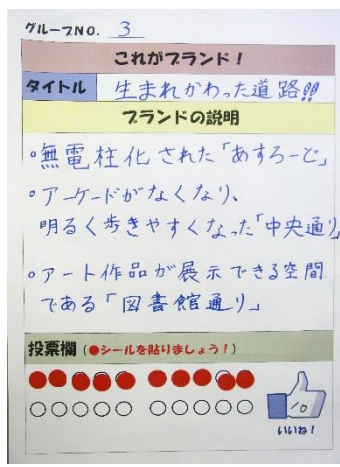 グループNO. 3
これがブランド！
タイトル 生まれかわった道路!!
ブランドの説明
○無電柱化された「あすろーど」
○アーケードがなくなり、
明るく歩きやすくなった「中央通り」
○アート作品が展示できる空間
である「図書館通り」
投票欄（●シールを貼りましょう！）
10
いいね！